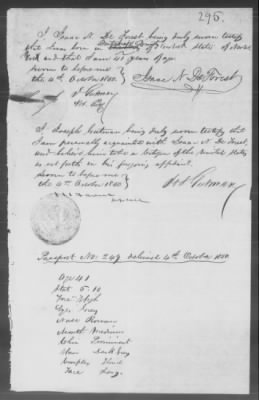 295.
I Isaac N. De Forest being duly sworn certify
that I was born in State of New
York and that I am 41 years of age
Sworn to before me
the 4th October 1850. Isaac N. De Forest
I Joseph Gutman being duly sworn certify that
I am personally acquainted with Isaac N. De Forest,
and believe him to be a citizen of the United States
as set forth in his foregoing affidavit.
Sworn to before me
the 4th October 1850. Jos Gutman
Passport No: 249 delivered 4th October 1850.
Age 41
Stat. 5.10
Fore: High
Eyes Grey
Nose Roman
Mouth Medium
Chin Prominent
Hair Dark Grey
Complex
Face Long.